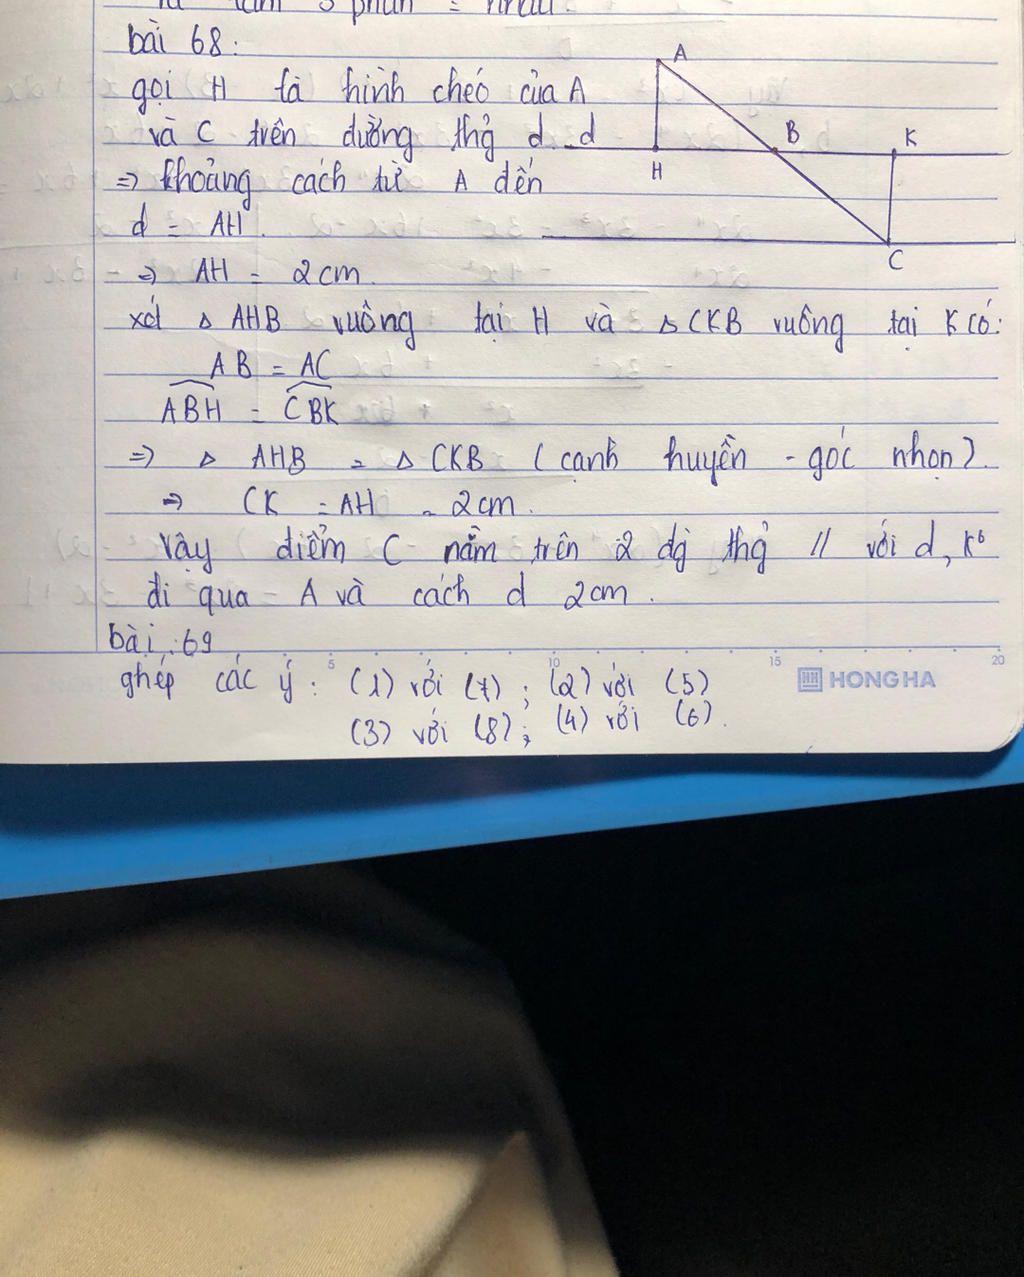 là tâm 3 phần = nhau.
bài 68:
gọi H là hình chéo của A
và C trên đường thg̉ d.
d
A
B
K
H
C
=> khoảng cách từ A đến
d = AH.
=> AH = 2cm.
xét △ AHB vuông tại H và △ CKB vuông tại K có:
AB = AC
ABH = CBK
=> △ AHB = △ CKB (cạnh huyền - góc nhọn).
=> CK = AH = 2cm.
vậy điểm C nằm trên 2 dg̀ thg̉ // với d, k⁰
đi qua A và cách d 2cm.
bài: 69
5 10 15 20
ghép các ý: (1) với (7); (2) với (5)
(3) với (8); (4) với (6).
HH HONG HA